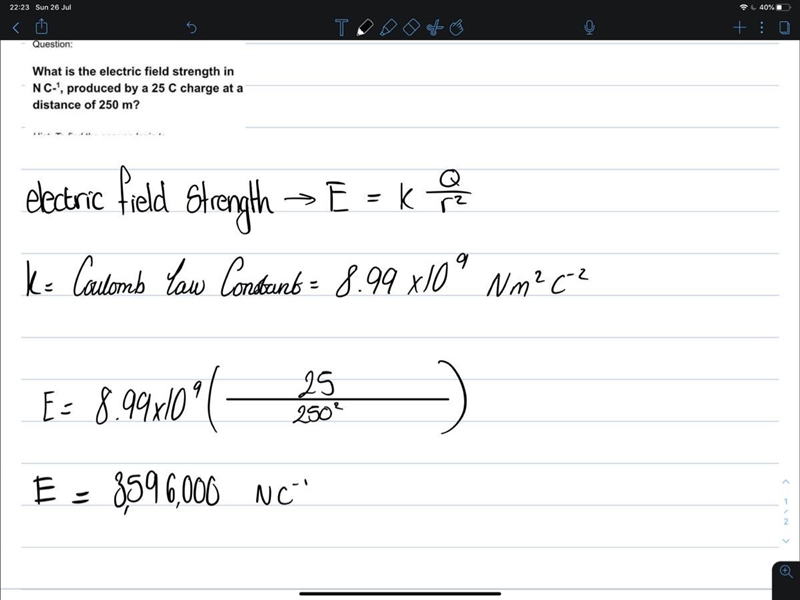 22:23 Sun 26 Jul 40%
Question:
What is the electric field strength in
N C-¹, produced by a 25 C charge at a
distance of 250 m?
electric field Strength → E = K Q/r²
k = Coulomb Law Constant = 8.99 x10⁹ Nm²C⁻²
E = 8.99x10⁹ ( 25 / 250² )
E = 3,596,000 NC⁻¹
1
/
2